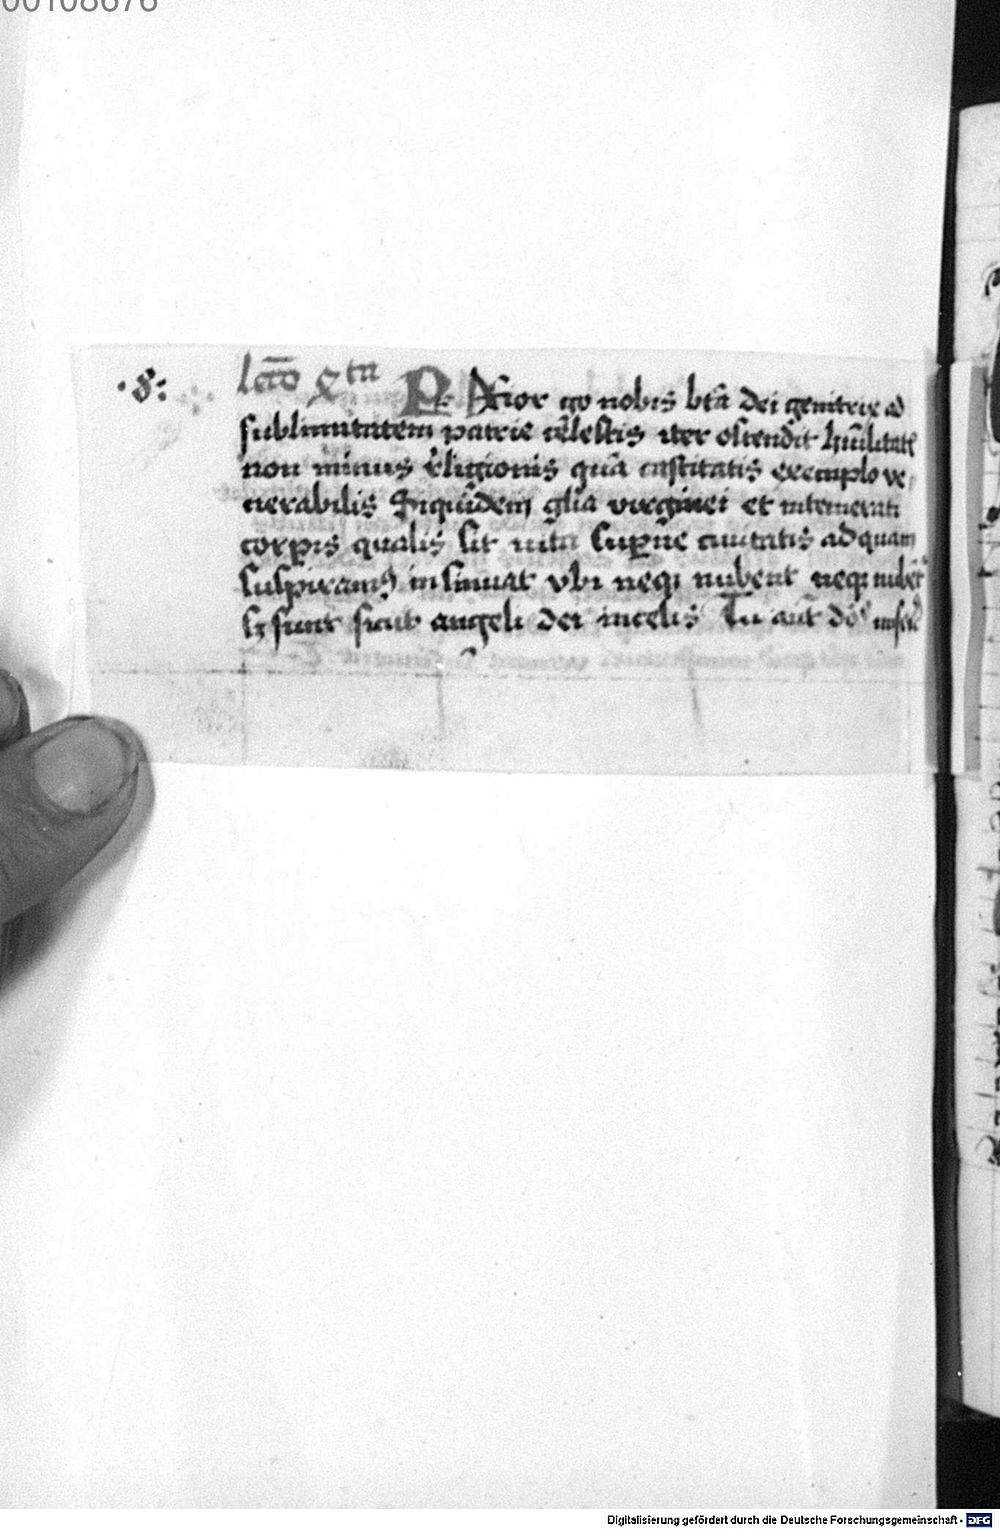 00108676
·8:
lcc̄o xta
Maior g̊o nobis btā dei genitrix ad
sublimitatem patrie cēlestis iter ostendit hūilitate
non minus r̄ligionis quā castitatis exemplo ve
nerabilis Siquidem glīa virginei et intemerati
corp̲is qualis sit uita sup̲ne ciuitatis ad quam
suspiramꝰ insinuat vbi neqꝫ nubent neqꝫ nubēt
sꝫ sunt sicut angeli dei in celis Tu aūt
Digitalisierung gefördert durch die Deutsche Forschungsgemeinschaft - DFG